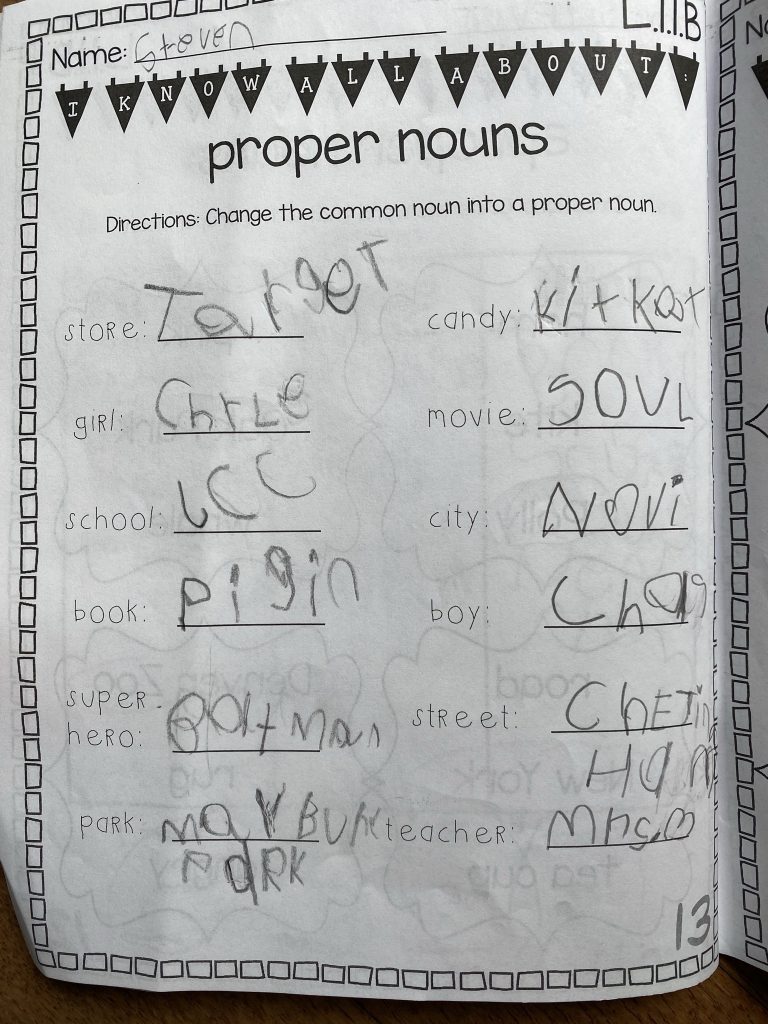 L.1.1B
Name: Steven
I KNOW ALL ABOUT:
proper nouns
Directions: Change the common noun into a proper noun.
store: Target
candy: Kit Kat
girl: ChrLe
movie: SOUL
school: LCC
city: Novi
book: pigin
boy: Chas
super hero: Batman
street: ChETin Ham
park: MayBURY PARK
teacher:
13